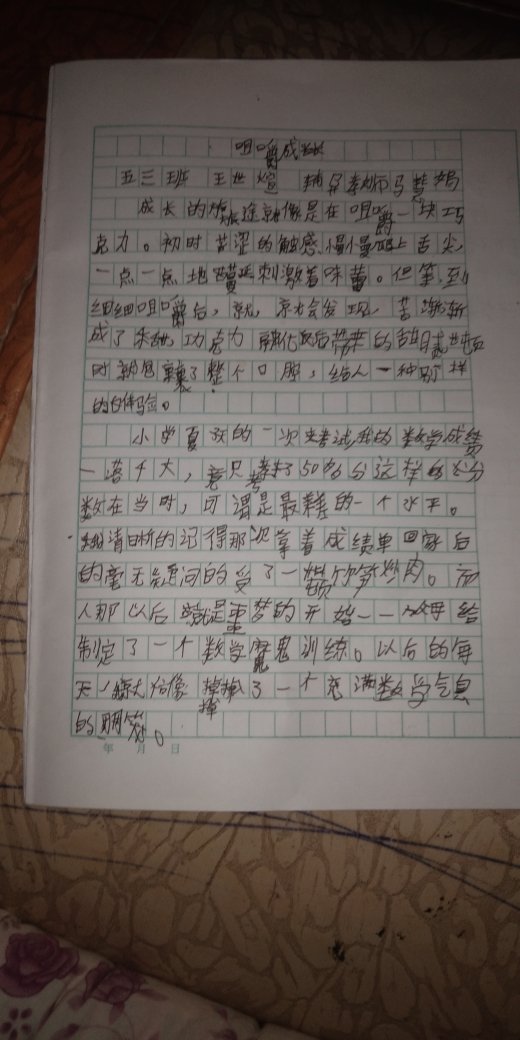 咀嚼成长
五三班 王世煊 辅导教师马楚娟
成长的旅途就像是在咀嚼一块巧
克力。初时苦涩的触感慢慢爬上舌尖,
一点一点地蔓延刺激着味蕾。但等到
细细咀嚼后,就,就会发现,苦渐渐
成了 巧克力 融化后带来的甜
时 整个口腔,给人一种别样
的体验。
小学 的一次 考试我的数学成绩
一落千丈,竟只考了50 分这样的 分
数在当时,可谓是最糟的一个水平。
清晰的记得那次拿着成绩单回家后
的毫无 的受了一顿 炒肉。而
人那以后就是噩梦的开始——父母给
制定了一个数学魔鬼训练。以后的每
天,我 像掉掉了一个充满数学气息
掉
的
年 月 日